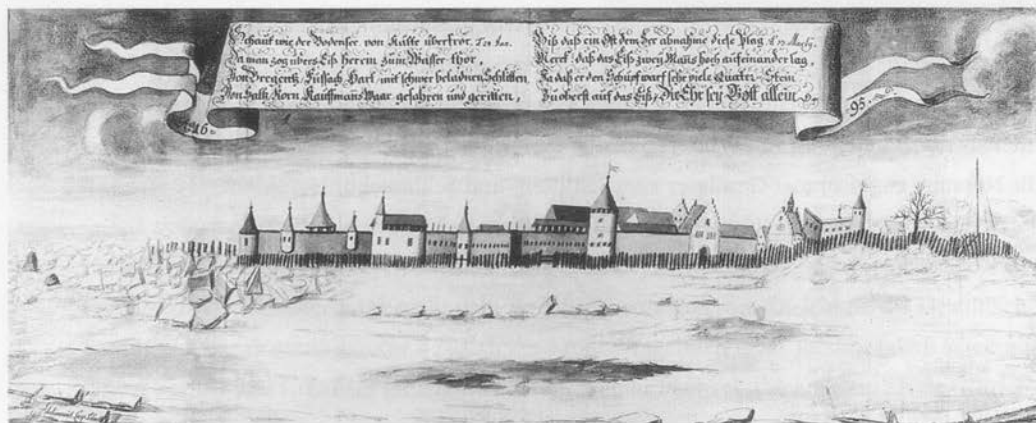 Schaut wie der Bodensee von Kälte überfror,
Da man zog übers Eiß herein zum Wasser-thor,
Von Bregentz, Fussach, Hart, mit schwer beladnen Schlitten
Von Saltz, Korn, Kauffmans Waar gefahren und geritten,
Biß daß ein Ost dem See abnahme diese Plag
Merck, daß das Eiß zwey Mans hoch aufeinander lag,
Ja daß er den Schüpf warf sehr viele Quater-Stein
Zu oberst auf das Eiß, Die Ehr sey Gott allein
16
95